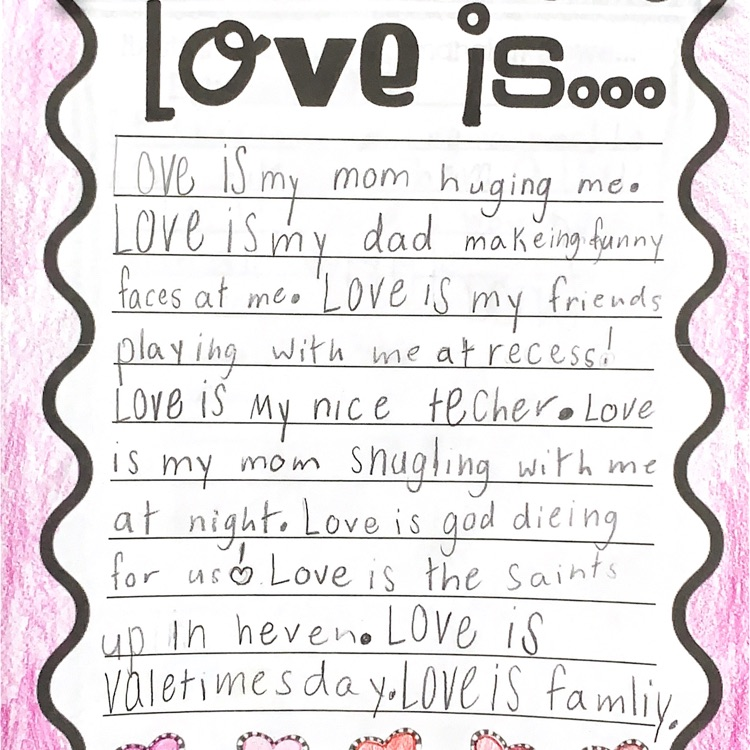 Love is...
Love is my mom huging me.
Love is my dad makeing funny
faces at me. Love is my friends
playing with me at recess!
Love is my nice techer. Love
is my mom snugling with me
at night. Love is god dieing
for us! Love is the saints
up in heven. Love is
valetimesday. Love is famliy.